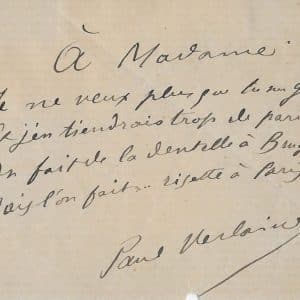 À Madame
Je ne veux plus que tu m
Et j'en tiendrais trop de
On fait de la dentelle à Bru
Mais l'on fait... risette à Paris
Paul Verlaine